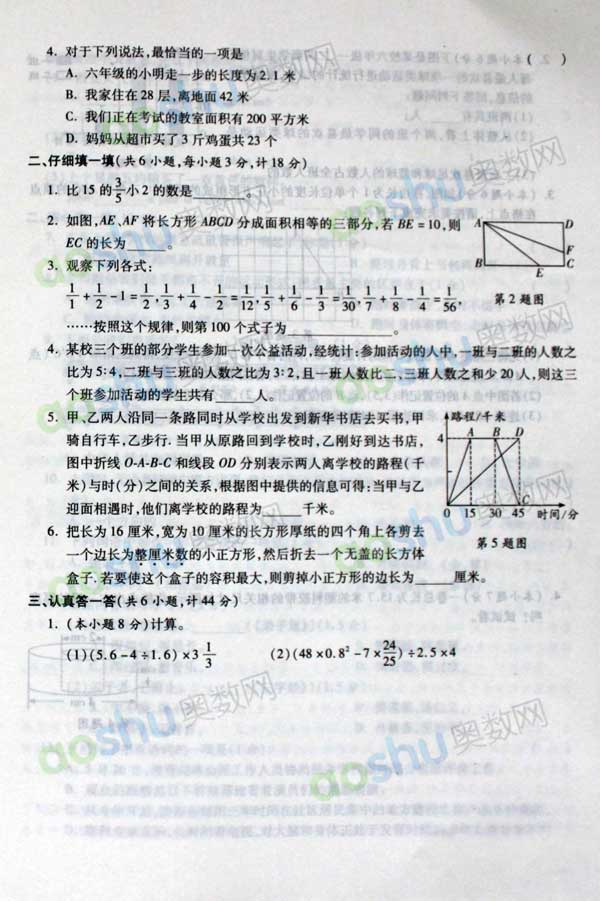 4. 对于下列说法,最恰当的一项是 ( )
A. 六年级的小明走一步的长度为2.1米
B. 我家住在28层,离地面42米
C. 我们正在考试的教室面积有200平方米
D. 妈妈从超市买了3斤鸡蛋共23个
二、仔细填一填(共6小题,每小题3分,计18分)
1. 比15的3/5小2的数是______。
2. 如图,AE、AF将长方形ABCD分成面积相等的三部分,若BE=10,则
EC的长为______。
A D F B E C
第2题图
3. 观察下列各式:
1/1+1/2-1=1/2,1/3+1/4-1/2=1/12,1/5+1/6-1/3=1/30,1/7+1/8-1/4=1/56,
……按照这个规律,则第100个式子为______。
4. 某校三个班的部分学生参加一次公益活动,经统计:参加活动的人中,一班与二班的人数之
比为5:4,二班与三班的人数之比为3:2,且一班人数比二、三班人数之和少20人,则这三
个班参加活动的学生共有______人。
5. 甲、乙两人沿同一条路同时从学校出发到新华书店去买书,甲
骑自行车,乙步行.当甲从原路回到学校时,乙刚好到达书店,
图中折线O-A-B-C和线段OD分别表示两人离学校的路程(千
米)与时(分)之间的关系,根据图中提供的信息可得:当甲与乙
迎面相遇时,他们离学校的路程为______千米。
路程/千米
4 A B D
C
0 15 30 45 时间/分
第5题图
6. 把长为16厘米,宽为10厘米的长方形厚纸的四个角上各剪去
一个边长为整厘米数的小正方形,然后折去一个无盖的长方体
盒子.若要使这个盒子的容积最大,则剪掉小正方形的边长为______厘米。
三、认真答一答(共6小题,计44分)
1. (本小题8分)计算。
(1)(5.6-4÷1.6)×3 1/3 (2)(48×0.8²-7×24/25)÷2.5×4
aoshu奥数网